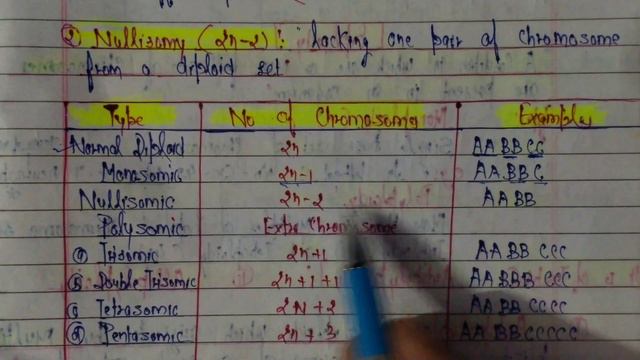 ② Nullisomy (2n-2) : lacking one pair of chromosome
from a diploid set
Type No of Chromosome Example
Normal Diploid 2n AA BB CC
Monosomic 2n-1 AA BB C
Nullisomic 2n-2 AA BB
Polysomic Extra Chromosome
ⓐ Trisomic 2n+1 AA BB CCC
ⓑ Double Trisomic 2n+1+1 AA BBB CCC
ⓒ Tetrasomic 2N+2 AA BB CCCC
ⓓ Pentasomic 2n+3 AA BB CCCCC